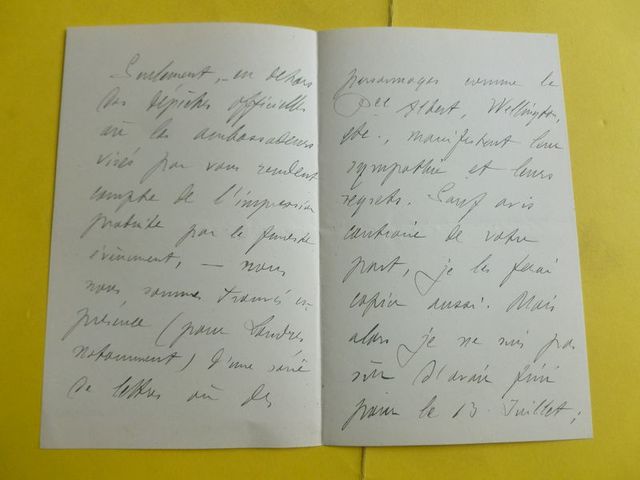 Seulement, – en dehors
des dépêches officielles
où les ambassadeurs
visés par vous rendent
compte de l'impression
produite par le funeste
évènement, – nous
nous sommes trouvés en
présence (pour Londres
notamment) d'une série
de lettres où des
personnages comme le
Pce Albert, Wellington,
etc., manifestent leur
sympathie et leurs
regrets. Sauf avis
contraire de votre
part, je les ferai
copier aussi. Mais
alors je ne suis pas
sûr d'avoir fini
pour le 13 Juillet ;